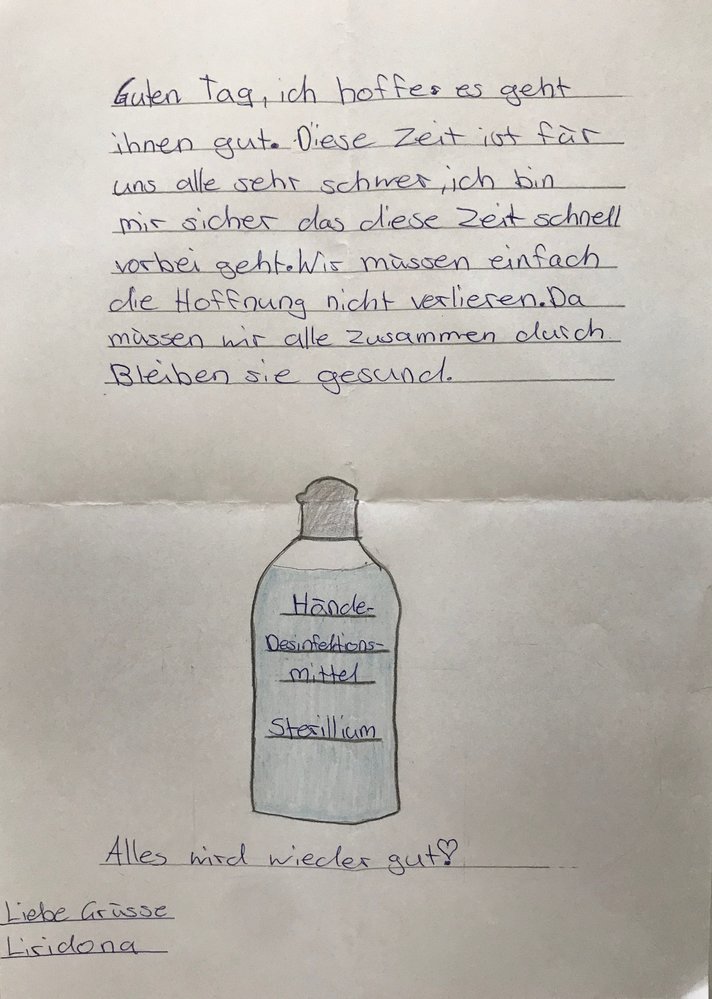 Guten Tag, ich hoffe es geht
ihnen gut. Diese Zeit ist für
uns alle sehr schwer, ich bin
mir sicher das diese Zeit schnell
vorbei geht. Wir müssen einfach
die Hoffnung nicht verlieren. Da
müssen wir alle zusammen durch
Bleiben sie gesund.
Hände-
Desinfektions-
mittel
Sterillium
Alles wird wieder gut♡
Liebe Grüsse
Liridona